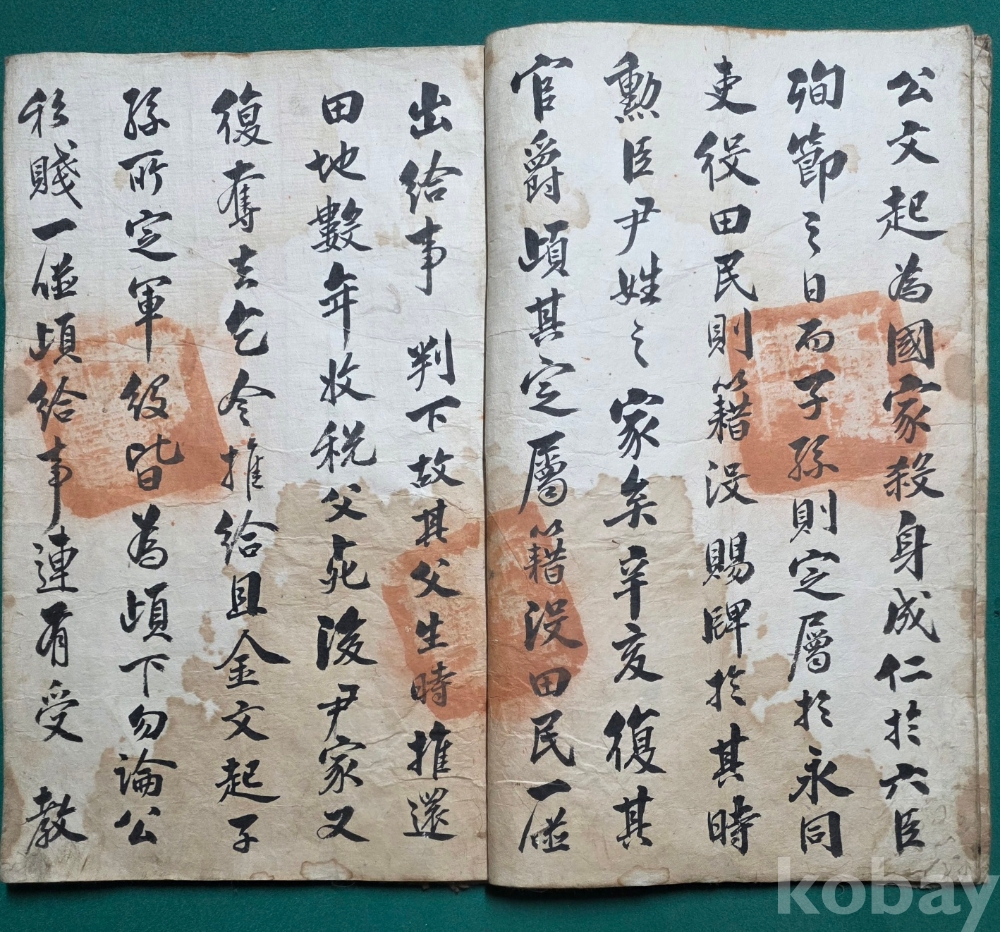 公文起為國家殺身成仁於六臣
殉節之日而子孫則定屬於永同
吏役田民則籍沒賜牌於其時
勳臣尹姓之家矣辛亥復其
官爵頉其定屬籍沒田民一碰
出給事 判下故其父生時推還
田地數年收稅父死後尹家又
復奪去乞令推給且金文起子
孫所定軍役皆為頉下勿論公
私賤一碰頉給事連有受 教
kobay